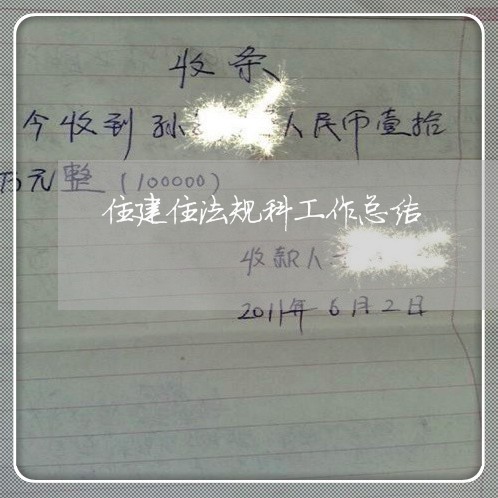 收条
今收到孙 人民币壹拾
万元整(100000)
住建住法规科工作总结
收款人
2011年6月2日